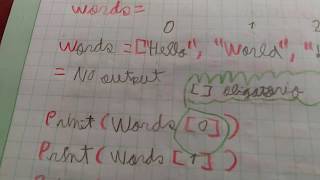 words=
0 1 2
words=["Hello", "World", "!
= No output
[ ] obligatorio
Print(Words[0])
Print(Words[1])